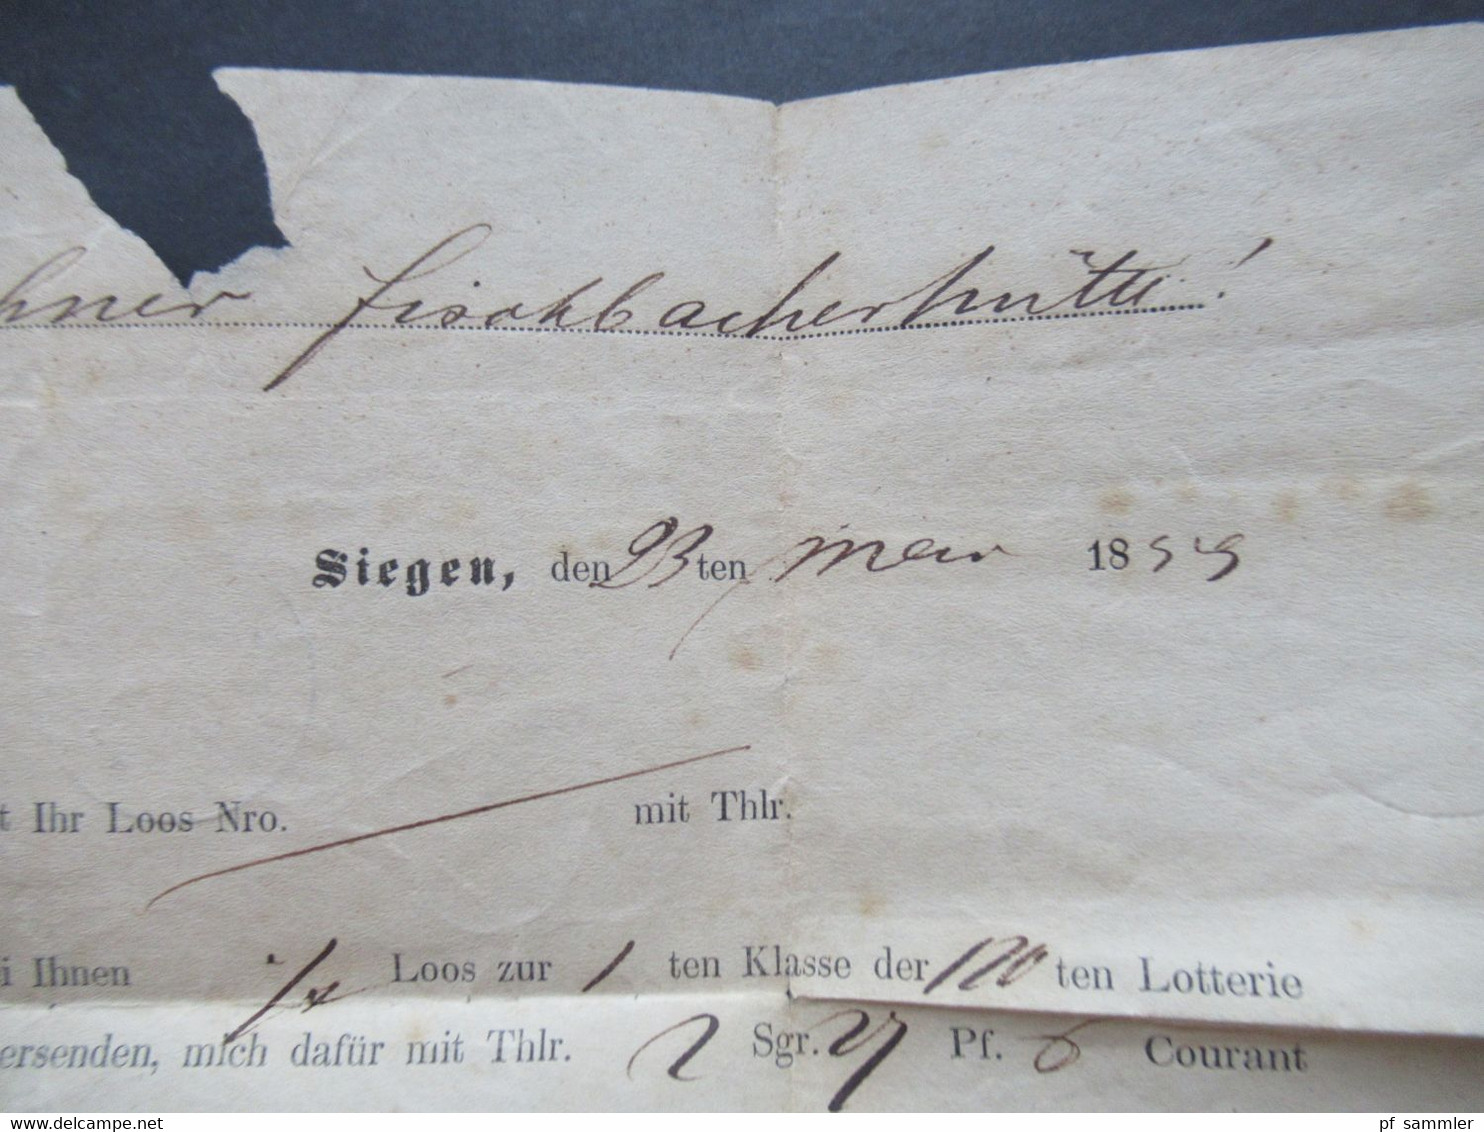 hner Fischbacherhütte!
Siegen, den 23ten Mai 1859
t Ihr Loos Nro. mit Thlr.
i Ihnen 1/4 Loos zur 1 ten Klasse der 120 ten Lotterie
ersenden, mich dafür mit Thlr. 2 Sgr. 27 Pf. 6 Courant
pf_sammler